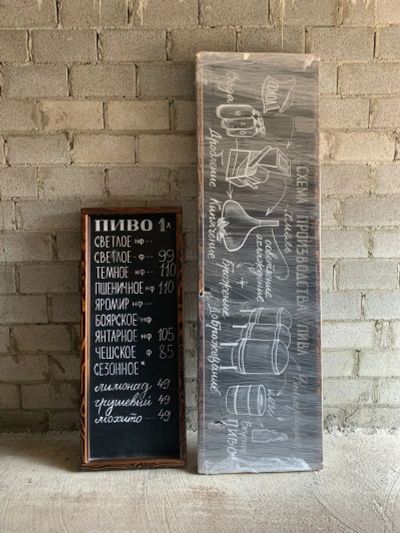 ПИВО 1л
СВЕТЛОЕ нф --
СВЕТЛОЕ ф -- 99
ТЕМНОЕ нф -- 110
ПШЕНИЧНОЕ нф 110
ЯРОМИР нф --
БОЯРСКОЕ нф --
ЯНТАРНОЕ нф 105
ЧЕШСКОЕ ф 85
СЕЗОННОЕ*
лимонад 49
грушевый 49
мохито -- 49
СХЕМА ПРОИЗВОДСТВА ПИВА
Вода
Солод
Дробление
Кипячение
хмель
охлаждение
+
Брожение
Дображивание
ПИВО